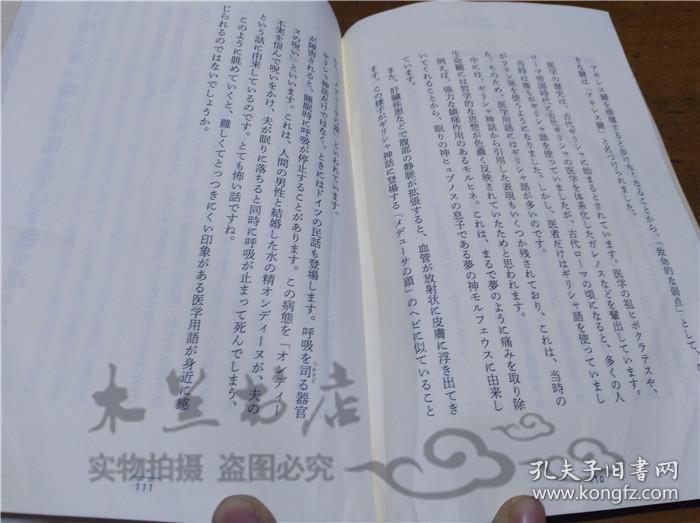 アキレス腱を損傷すると歩けなくなることから、「致命的な弱点」として、
きた腱は「アキレス腱」と名づけられました。
医学の歴史は、古代ギリシャに始まるとされています。医学の祖ヒポクラテスや、
ローマ帝国時代に古代ギリシャの医学を体系化したガレノスなどを輩出しています。
当時は誰もがギリシャ語を使っていましたが、古代ローマの頃になると、多くの人
がラテン語を使うようになりました。しかし、医者だけはギリシャ語を使っていまし
た。そのため、医学用語にはギリシャ語が多いのです。
中には、ギリシャ神話から引用した表現もいくつか残されており、これは、当時の
生命観に哲学的な思想が色濃く反映されていたためと思われます。
例えば、強力な鎮痛作用のあるモルヒネ。これは、まるで夢のように痛みを取り除
いてくれることから、眠りの神ヒュプノスの息子である夢の神モルフェウスに由来し
ています。
また、肝臓疾患などで腹部の静脈が拡張すると、血管が放射状に皮膚に浮き出てき
ます。この様子がギリシャ神話に登場する「メデューサの頭」のヘビに似ていること
といわれています。
ギリシャ神話だけではなく、ときにはドイツの民話も登場します。呼吸を司る器官
つかさど
が障害されると、睡眠時に呼吸が停止することがあります。この病態を「オンディー
ヌの呪い」といいます。これは、人間の男性と結婚した水の精オンディーヌが、夫の
不実を恨んで呪いをかけ、夫が眠りに落ちると同時に呼吸が止まって死んでしまう、
という話に由来しているのです。とても怖い話ですね。
このように眺めていくと、難しくてとっつきにくい印象がある医学用語が身近に感
じられるのではないでしょうか。
111
木兰书店
实物拍摄 盗图必究
孔夫子旧书网
www.kongfz.com